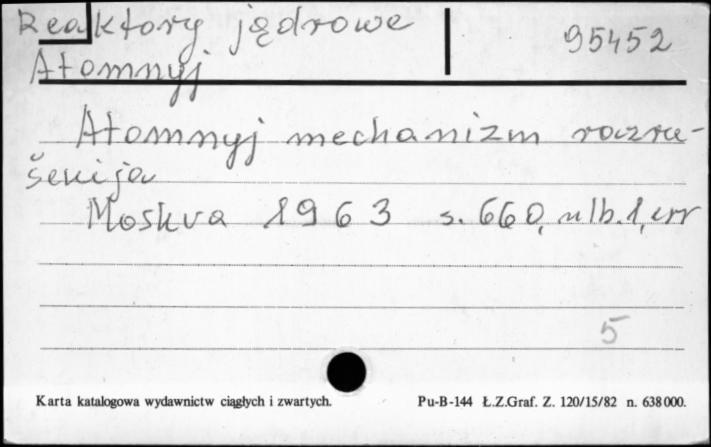 Reaktory jądrowe
95452
Atomnyj
Atomnyj mechanizm razru-
šenija
Moskva 1963 s. 660, nlb. 1, err
5
Karta katalogowa wydawnictw ciągłych i zwartych. Pu-B-144 Ł.Z.Graf. Z. 120/15/82 n. 638 000.